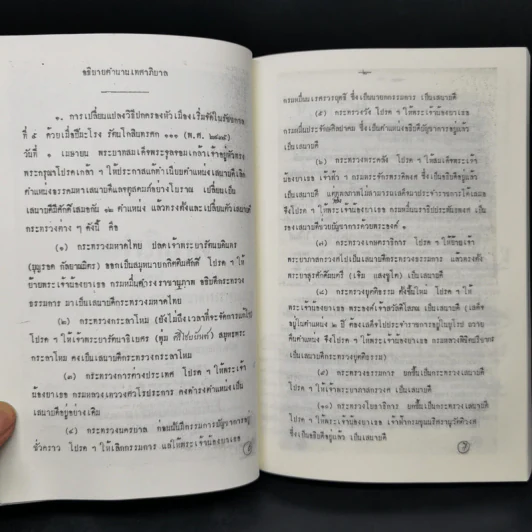 อธิบายตำนานเทศาภิบาล
๑. การเปลี่ยนแปลงวิธีปกครองหัวเมืองเริ่มจัดในรัชกาล
ที่ ๕ ด้วยเมื่อปีมะโรง รัตนโกสินทรศก ๑๑๑ (พ.ศ. ๒๔๓๕)
วันที่ ๑ เมษายน พระบาทสมเด็จพระจุลจอมเกล้าเจ้าอยู่หัวทรง
พระกรุณาโปรดเกล้า ฯ ให้ประกาศ
ตำแหน่งอรรคมหาเสนาบดีและจตุสดมภ์อย่างโบราณ เปลี่ยนเป็น
เสนาบดีมีศักดิ์เสมอกัน ๑๒ ตำแหน่ง แล้วทรงตั้งและเปลี่ยนตัวเสนาบดี
กระทรวงต่าง ๆ ดังนี้ คือ
(๑) กระทรวงมหาดไทย ปลดเจ้าพระยารัตนบดินทร
(บุญรอด กัลยาณมิตร) ออกเป็นสมุหนายกกิตติมศักดิ์ โปรด ฯ ให้
ย้ายพระเจ้าน้องยาเธอ กรมหมื่นดำรงราชานุภาพ อธิบดีกระทรวง
ธรรมการ มาเป็นเสนาบดีกระทรวงมหาดไทย
(๒) กระทรวงกลาโหม (ยังไม่ถึงเวลาที่จะจัดการแก้ไข)
โปรด ฯ ให้เจ้าพระยารัตนาธิเบศร (พุ่ม ศรีไชยันต์) สมุหพระ
กระลาโหม คงเป็นเสนาบดีกระทรวงกระลาโหม
(๓) กระทรวงการต่างประเทศ โปรด ฯ ให้พระเจ้า
น้องยาเธอ กรมหลวงเทววงศวโรประการ คงดำรงตำแหน่งเป็น
เสนาบดีอยู่อย่างเดิม
(๔) กระทรวงนครบาล ก่อนนั้นมีกรรมการบัญชาการอยู่
ชั่วคราว โปรด ฯ ให้เลิกกรรมการ แลให้พระเจ้าน้องยาเธอ
กรมหมื่นนเรศวรฤทธิ์ ซึ่งเป็นนายกกรรมการ เป็นเสนาบดี
(๕) กระทรวงวัง โปรด ฯ ให้พระเจ้าน้องยาเธอ
กรมหมื่นประจักษ์ศิลปาคม ซึ่งเป็นตำแหน่งอธิบดีบัญชาการอยู่แล้ว
เป็นเสนาบดี
(๖) กระทรวงพระคลัง โปรด ฯ ให้สมเด็จพระเจ้า
น้องยาเธอ เจ้าฟ้า กรมพระจักรพรรดิพงศ์ ซึ่งเป็นอธิบดีอยู่แล้ว
เป็นเสนาบดี
จึงโปรด ฯ ให้พระเจ้าน้องยาเธอ กรมหมื่นนราธิปประพันธพงศ์ เป็น
รองเสนาบดี
(๗) กระทรวงเกษตราธิการ โปรด ฯ ให้
พระยาภาสกรวงศ์ไปเป็นเสนาบดีกระทรวงธรรมการ แล้วทรงตั้ง
พระยาสุรศักดิ์มนตรี (เจิม แสงชูโต) เป็นเสนาบดี
(๘) กระทรวงยุติธรรม ตั้งขึ้นใหม่ โปรด ฯ ให้
พระเจ้าน้องยาเธอ พระองค์เจ้าสวัสดิโสภณ เป็นเสนาบดี (เสด็จ
อยู่ในตำแหน่ง ๒ ปี ต้องเสด็จไปประจำราชการอยู่ในยุโรป
เป็นเสนาบดีกระทรวงยุติธรรม)
(๙) กระทรวงธรรมการ ยกขึ้นเป็นกระทรวงเสนาบดี
โปรด ฯ ให้เจ้าพระยาภาสกรวงศ์ เป็นเสนาบดี
(๑๐) กระทรวงโยธาธิการ ยกขึ้นเป็นกระทรวงเสนาบดี
โปรด ฯ ให้พระเจ้าน้องยาเธอ เจ้าฟ้ากรมขุนนริศรานุวัดติวงศ์
ซึ่งเป็นอธิบดีอยู่แล้ว เป็นเสนาบดี